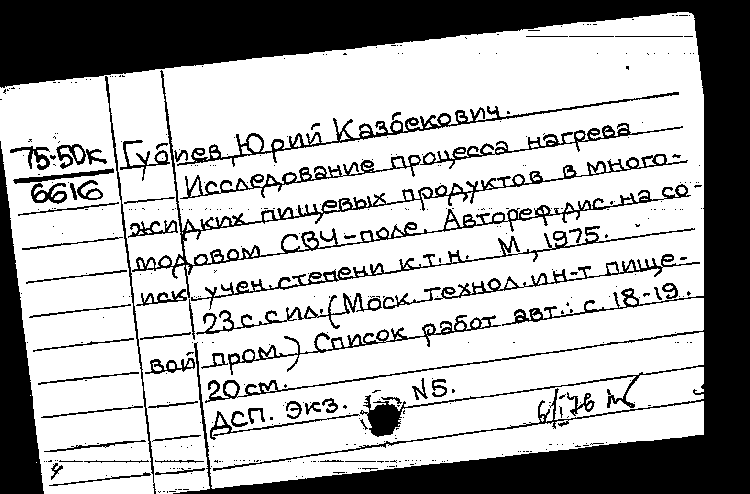 75-50к
6616
Губиев, Юрий Казбекович.
Исследование процесса нагрева
жидких пищевых продуктов в много-
модовом СВЧ-поле. Автореф. дис. на со-
иск. учен. степени к.т.н. М., 1975.
23 с. с ил. (Моск. технол. ин-т пище-
вой пром.) Список работ авт.: с. 18-19.
20 см.
ДСП. Экз. N5.